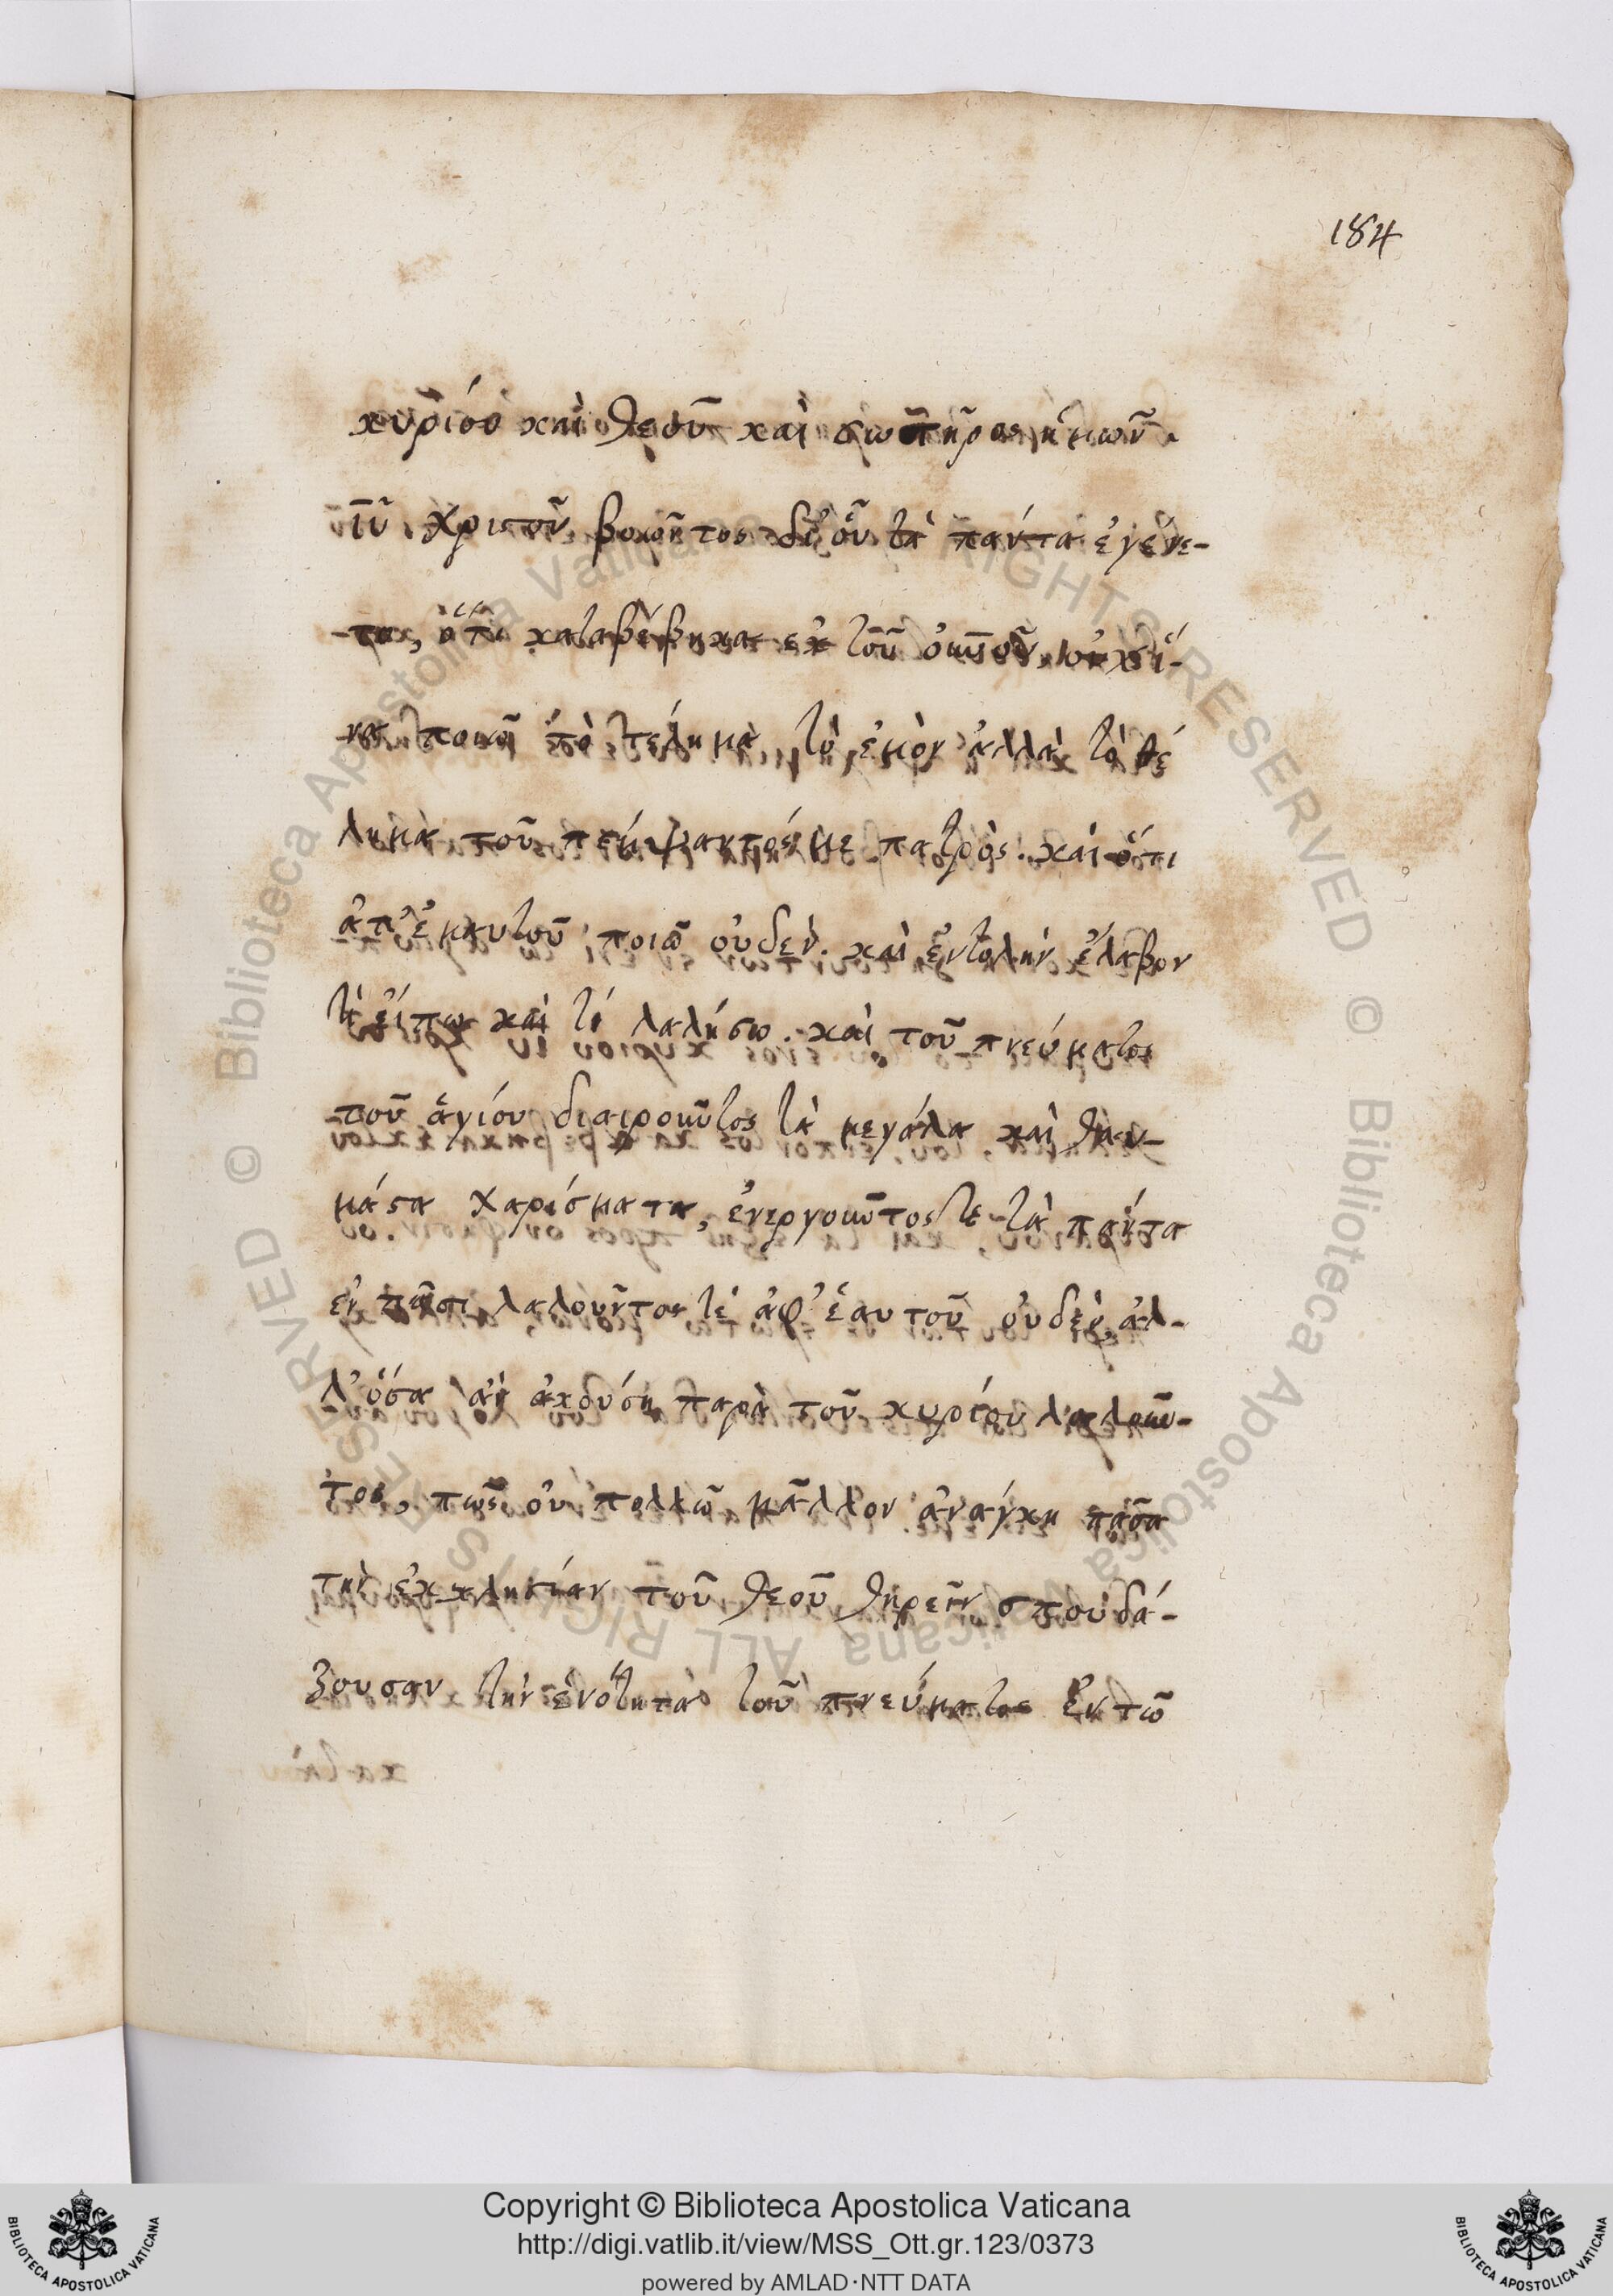 184
κυρίου καὶ θεοῦ καὶ σωτῆρος ἡμῶν
ἰῦ χριστοῦ βοῶντος δι' οὗ τὰ πάντα ἐγένε-
το, ὅτι καταβέβηκα ἐκ τοῦ οὐνοῦ, οὐχ ἵ-
να ποιῶ τὸ θέλημα τὸ ἐμὸν ἀλλὰ τὸ θέ
λημα τοῦ πέμψαντός με πατρὸς. καὶ ὅτι
ἀπ' ἐμαυτοῦ ποιῶ οὐδὲν. καὶ ἐντολὴν ἔλαβον
τί εἴπω καὶ τί λαλήσω. καὶ τοῦ πνεύματος
τοῦ ἁγίου διαιροῦντος τὰ μεγάλα καὶ θαυ-
μάσα χαρίσματα, ἐνεργοῦντος τε τὰ πάντα
ἐν πᾶσι λαλοῦντος τέ ἀφ' ἑαυτοῦ οὐδὲν, ἀλ-
λ' ὅσα ἂν ἀκούση παρὰ τοῦ κυρίου λαλοῦν-
τος, πῶς οὐ πολλῶ μᾶλλον ἀνάγκη πᾶσα
τὴν ἐκκλησίαν τοῦ θεοῦ τηρεῖν σπουδά-
ζουσαν τὴν ἑνότητα τοῦ πνεύματος ἐν τῶ
Copyright © Biblioteca Apostolica Vaticana
http://digi.vatlib.it/view/MSS_Ott.gr.123/0373
powered by AMLAD·NTT DATA
BIBLIOTECA APOSTOLICA VATICANA
BIBLIOTECA APOSTOLICA VATICANA
© Biblioteca Apostolica Vaticana ALL RIGHTS RESERVED © Biblioteca Apostolica Vaticana ALL RIGHTS RESERVED